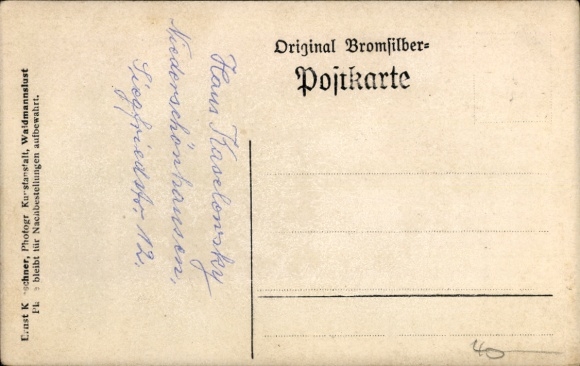 Original Bromsilber=
Postkarte
Hans Kaselowsky
Niederschönhausen,
Siegfriedstr. 12.
Ernst K schner, Photogr Kunstanstalt, Waidmannslust
Pl e bleibt für Nachbestellungen aufbewahrt.
40